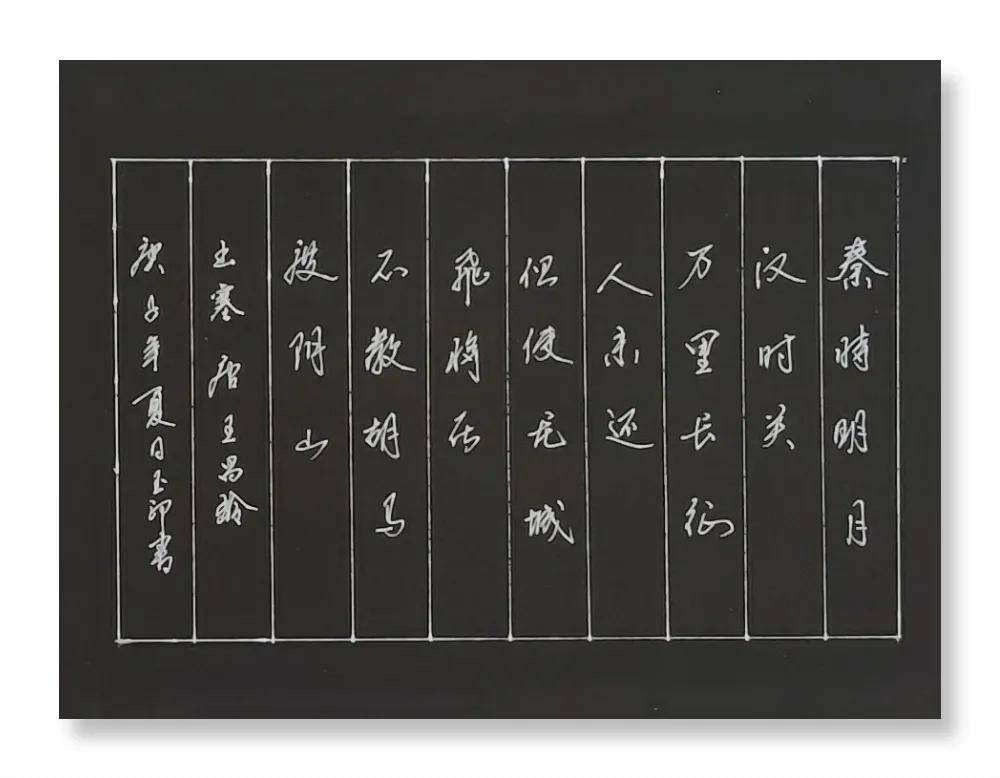 秦時明月
汉时关
万里长征
人未还
但使龙城
飛将在
不教胡马
度阴山
出塞 唐 王昌龄
庚子年夏日玉印書